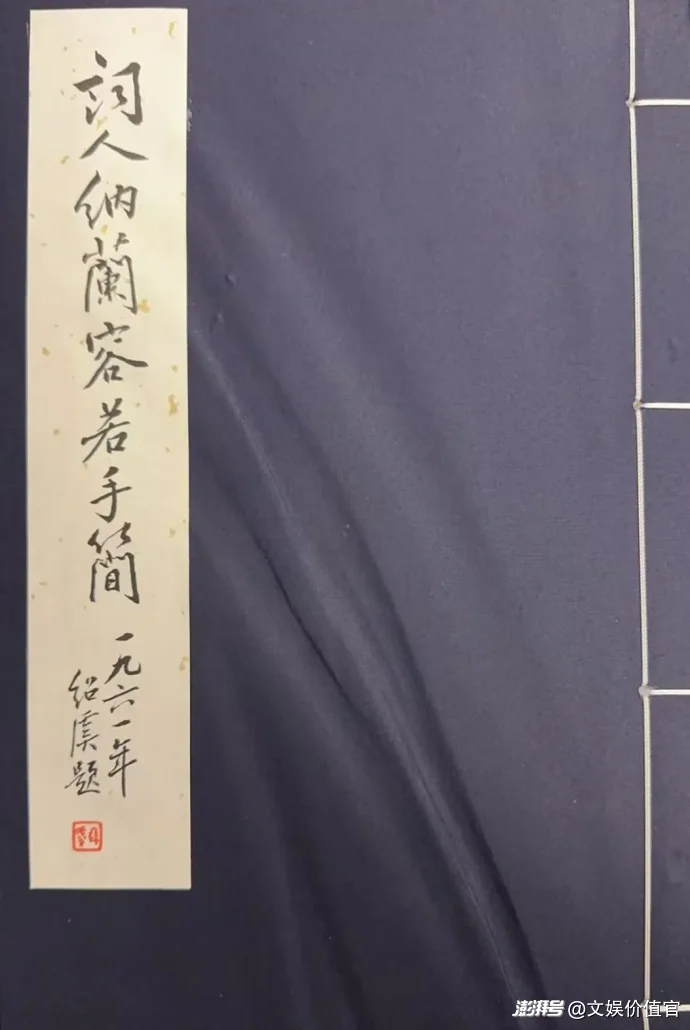 詞人納蘭容若手簡
一九六一年
紹虞題
澎湃号@文娱价值官